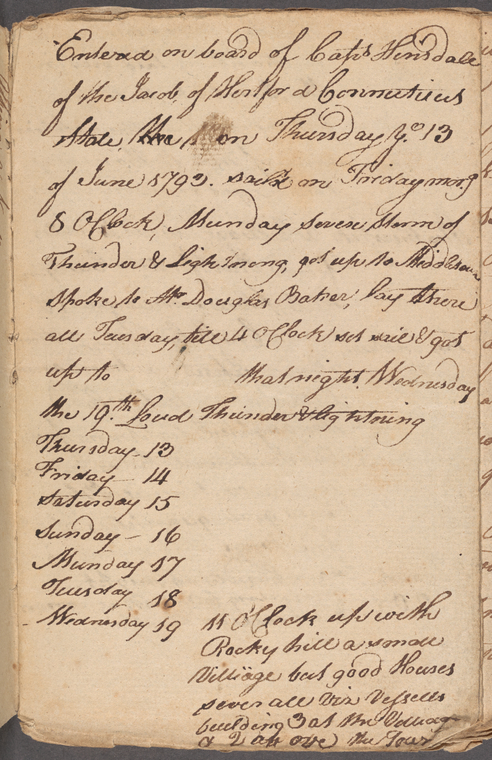 Entered on board of Capt Hinsdale
of the Jacob, of Hertford Connecticus
State, the 1 on Thursday ye 13
of June 1793. sail'd on Friday morng
8 OClock, Munday severe storm of
Thunder & Lightnong, got up to
spoke to Mr Douglas Baker, lay there
all Tuesday, till 4 OClock set sail & got
up to that night. Wednesday
the 19.th Loud Thunder & Lightning
Thursday - 13
Friday - 14
Saturday 15
Sunday - 16
Munday 17
Tuesday 18
Wednesday 19 11 OClock up with
Rocky hill a small
Village but good Houses
severall Viz Vessells
building 3 at the Village
& 2 above the Town